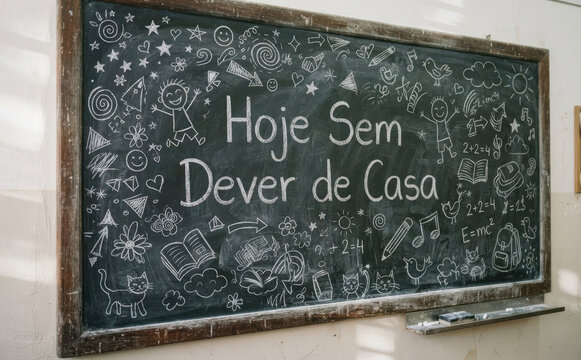 Hoje Sem
Dever de Casa
2+2=4
2+2=4
E=mc²
2+2=4